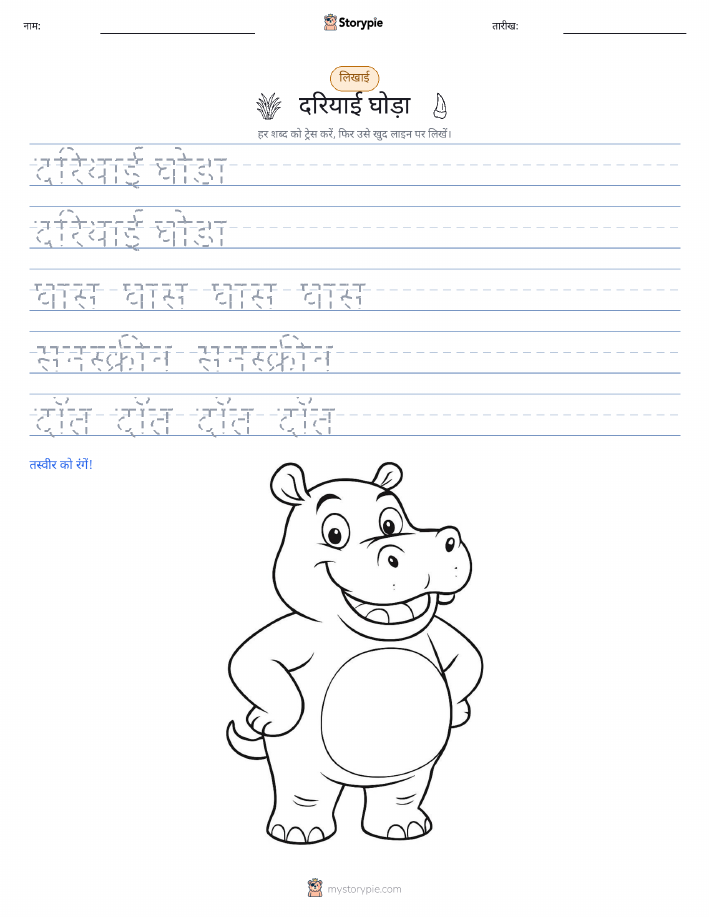 नाम:
Storypie
तारीख:
लिखाई
दरियाई घोड़ा
हर शब्द को ट्रेस करें, फिर उसे खुद लाइन पर लिखें।
दरियाई घोडा
दरियाई घोडा
घास घास घास घास
सनस्क्रीन सनस्क्रीन
दाँत दाँत दाँत दाँत
तस्वीर को रंगें!
mystorypie.com